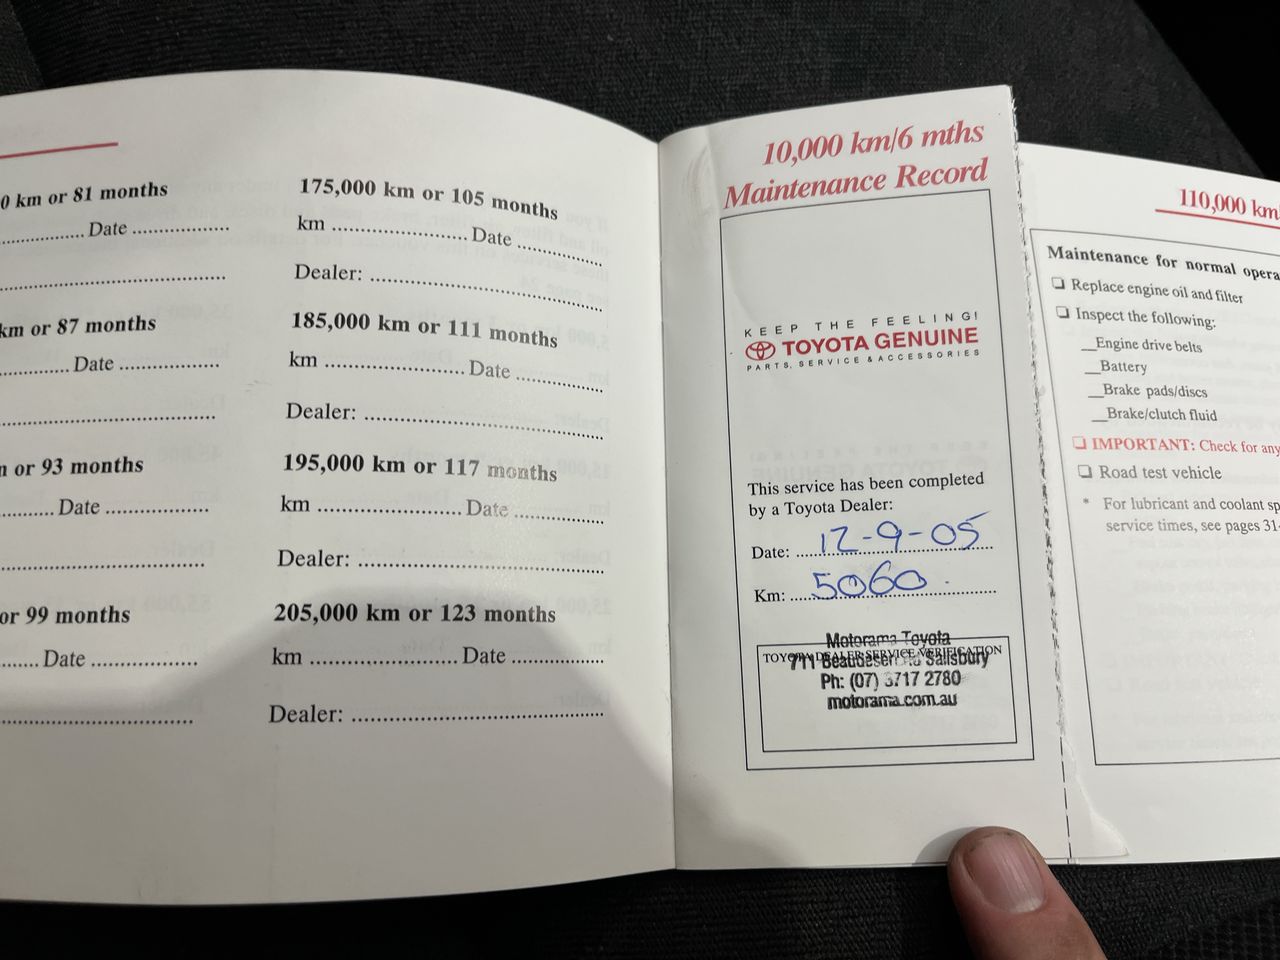 0 km or 81 months
Date
km or 87 months
Date
or 93 months
Date
or 99 months
Date
175,000 km or 105 months
km Date
Dealer:
185,000 km or 111 months
km Date
Dealer:
195,000 km or 117 months
km Date
Dealer:
205,000 km or 123 months
km Date
Dealer:
10,000 km/6 mths
Maintenance Record
KEEP THE FEELING!
TOYOTA GENUINE
PARTS, SERVICE & ACCESSORIES
This service has been completed
by a Toyota Dealer:
Date: 12-9-05
Km: 5060
Motorama Toyota
TOYOTA DEALER SERVICE VERIFICATION
711 Beaudesert Rd Salisbury
Ph: (07) 3717 2780
motorama.com.au
110,000 km
Maintenance for normal opera
Replace engine oil and filter
Inspect the following:
Engine drive belts
Battery
Brake pads/discs
Brake/clutch fluid
IMPORTANT: Check for any
Road test vehicle
* For lubricant and coolant sp
service times, see pages 31-